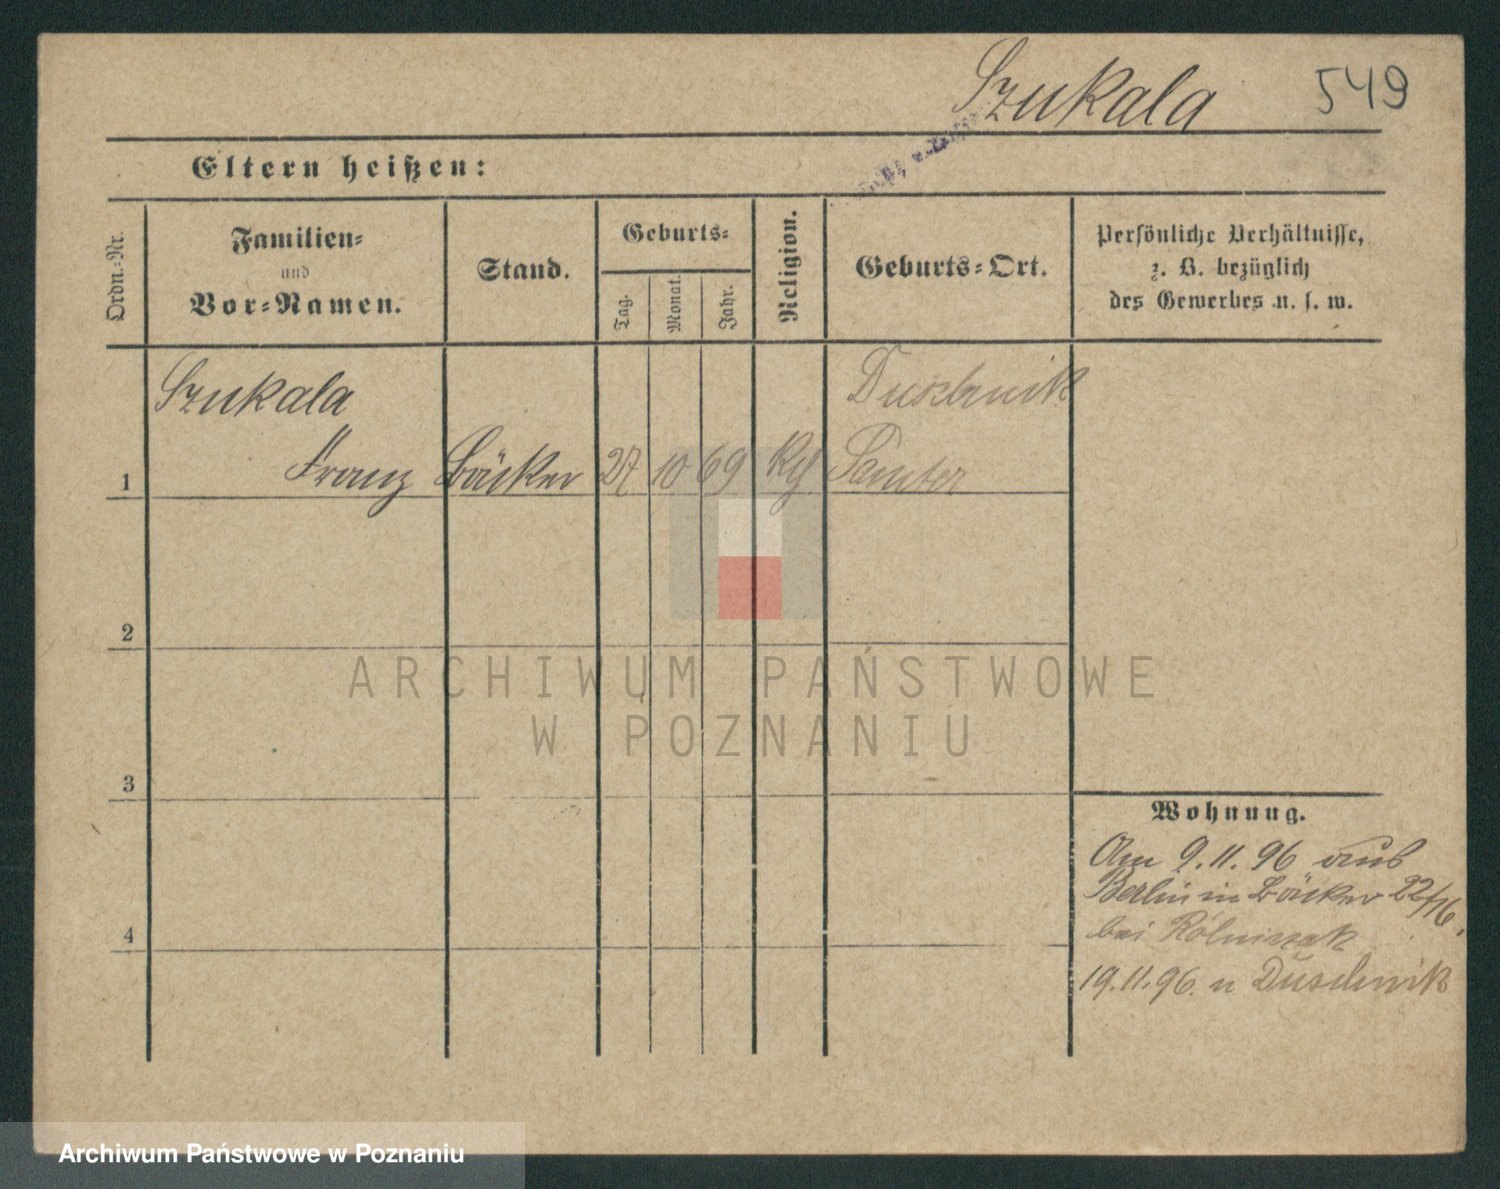 Szukala 549
Eltern heißen:
Ordn.-Nr.
Familien-
und
Vor-Namen.
Stand.
Geburts-
Tag.
Monat.
Jahr.
Religion.
Geburts-Ort.
Persönliche Verhältnisse,
z. B. bezüglich
des Gewerbes u. s. w.
Szukala
Duschnik
1 Franz Bäcker 27 10 69 Samter
2
3
4
Wohnung.
Am 9.11.96 aus
Berlin in Bäcker 22/16.
bei
19.11.96. n Duschnik
ARCHIWUM PAŃSTWOWE
W POZNANIU
Archiwum Państwowe w Poznaniu